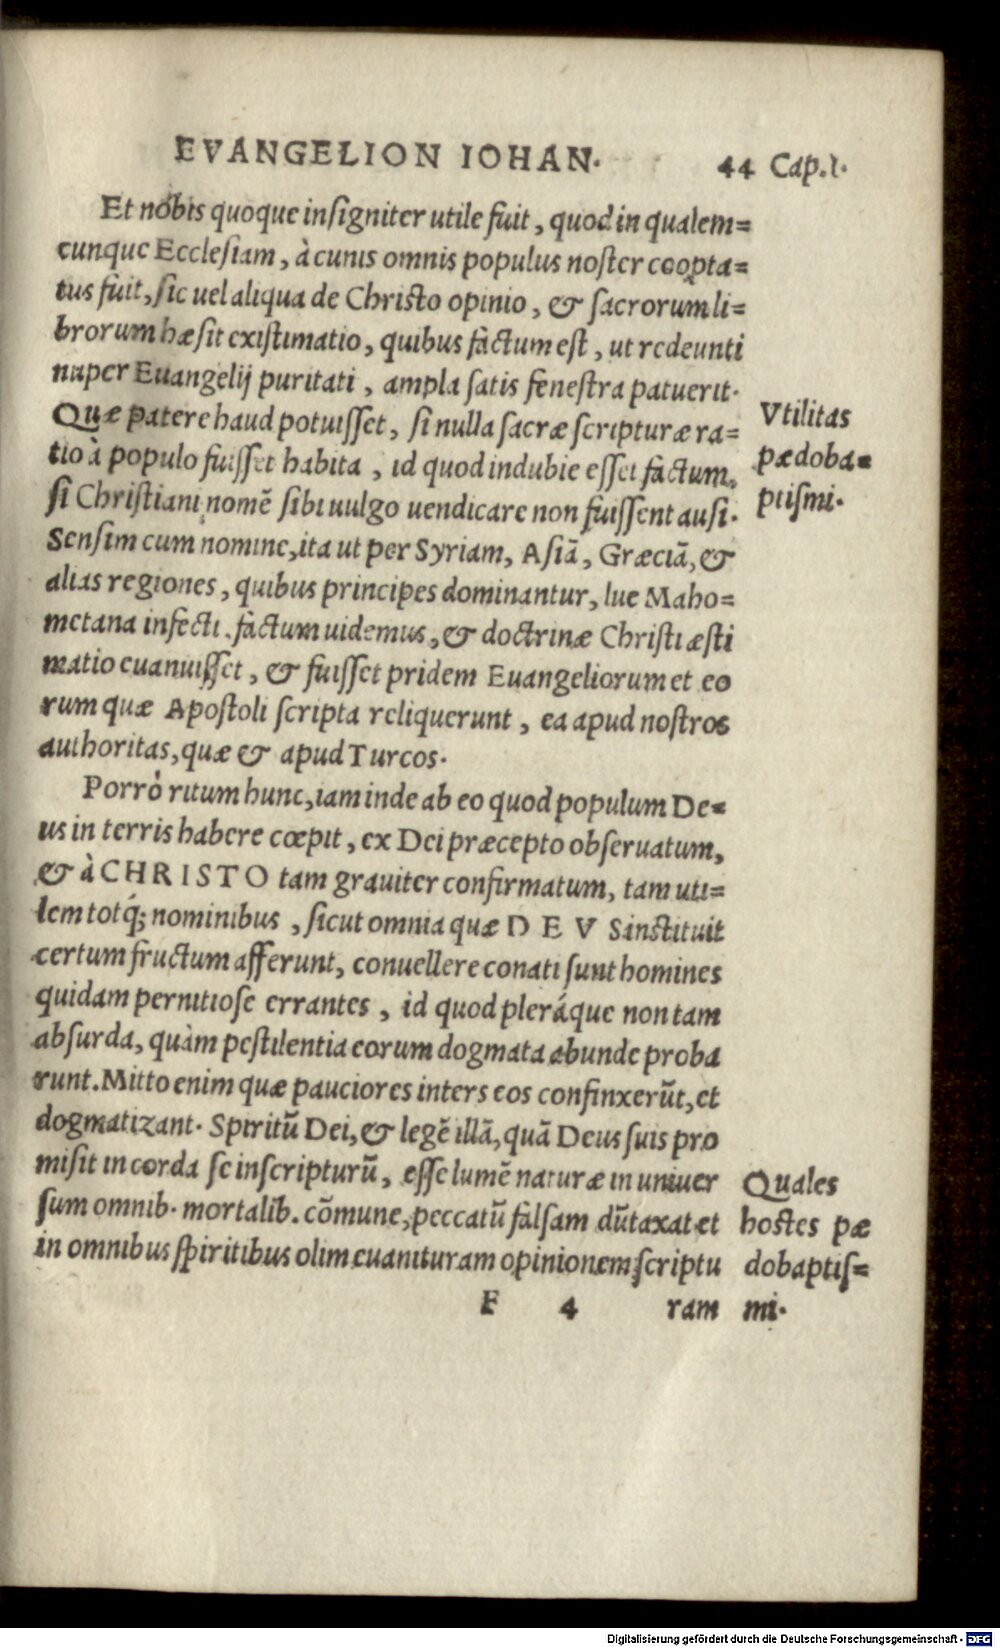 EVANGELION IOHAN. 44 Cap. 1.
Et nobis quoque insigniter utile fuit, quod in qualem=
cunque Ecclesiam, à cunis omnis populus noster coopta=
tus fuit, sic uel aliqua de Christo opinio, & sacrorum li=
brorum hæsit existimatio, quibus factum est, ut redeunti
nuper Euangelij puritati, ampla satis fenestra patuerit.
Quæ patere haud potuisset, si nulla sacræ scripturæ ra=
tio à populo fuisset habita, id quod indubie esset factum,
si Christiani nomē sibi uulgo uendicare non fuissent ausi.
Sensim cum nomine, ita ut per Syriam, Asiā, Græciā, &
alias regiones, quibus principes dominantur, lue Maho=
metana infecti, factum uidemus, & doctrinæ Christi æsti
matio euanuisset, & fuisset pridem Euangeliorum et eo
rum quæ Apostoli scripta reliquerunt, ea apud nostros
authoritas, quæ & apud Turcos.
Vtilitas
pædoba=
ptismi.
Porrò ritum hunc, iam inde ab eo quod populum De=
us in terris habere cœpit, ex Dei præcepto obseruatum,
& à CHRISTO tam grauiter confirmatum, tam uti=
lem totq́; nominibus, sicut omnia quæ D E V S instituit
certum fructum afferunt, conuellere conati sunt homines
quidam pernitiose errantes, id quod pleráque non tam
absurda, quàm pestilentia eorum dogmata abunde proba
runt. Mitto enim quæ pauciores inters eos confinxerūt, et
dogmatizant. Spiritū Dei, & legē illā, quā Deus suis pro
misit in corda se inscripturū, esse lumē naturæ in uniuer
sum omnib. mortalib. cōmune, peccatū falsam dūtaxat et
in omnibus spiritibus olim euanituram opinionem scriptu
Quales
hostes pæ
dobaptis=
mi.
F 4 ram
Digitalisierung gefördert durch die Deutsche Forschungsgemeinschaft - DFG